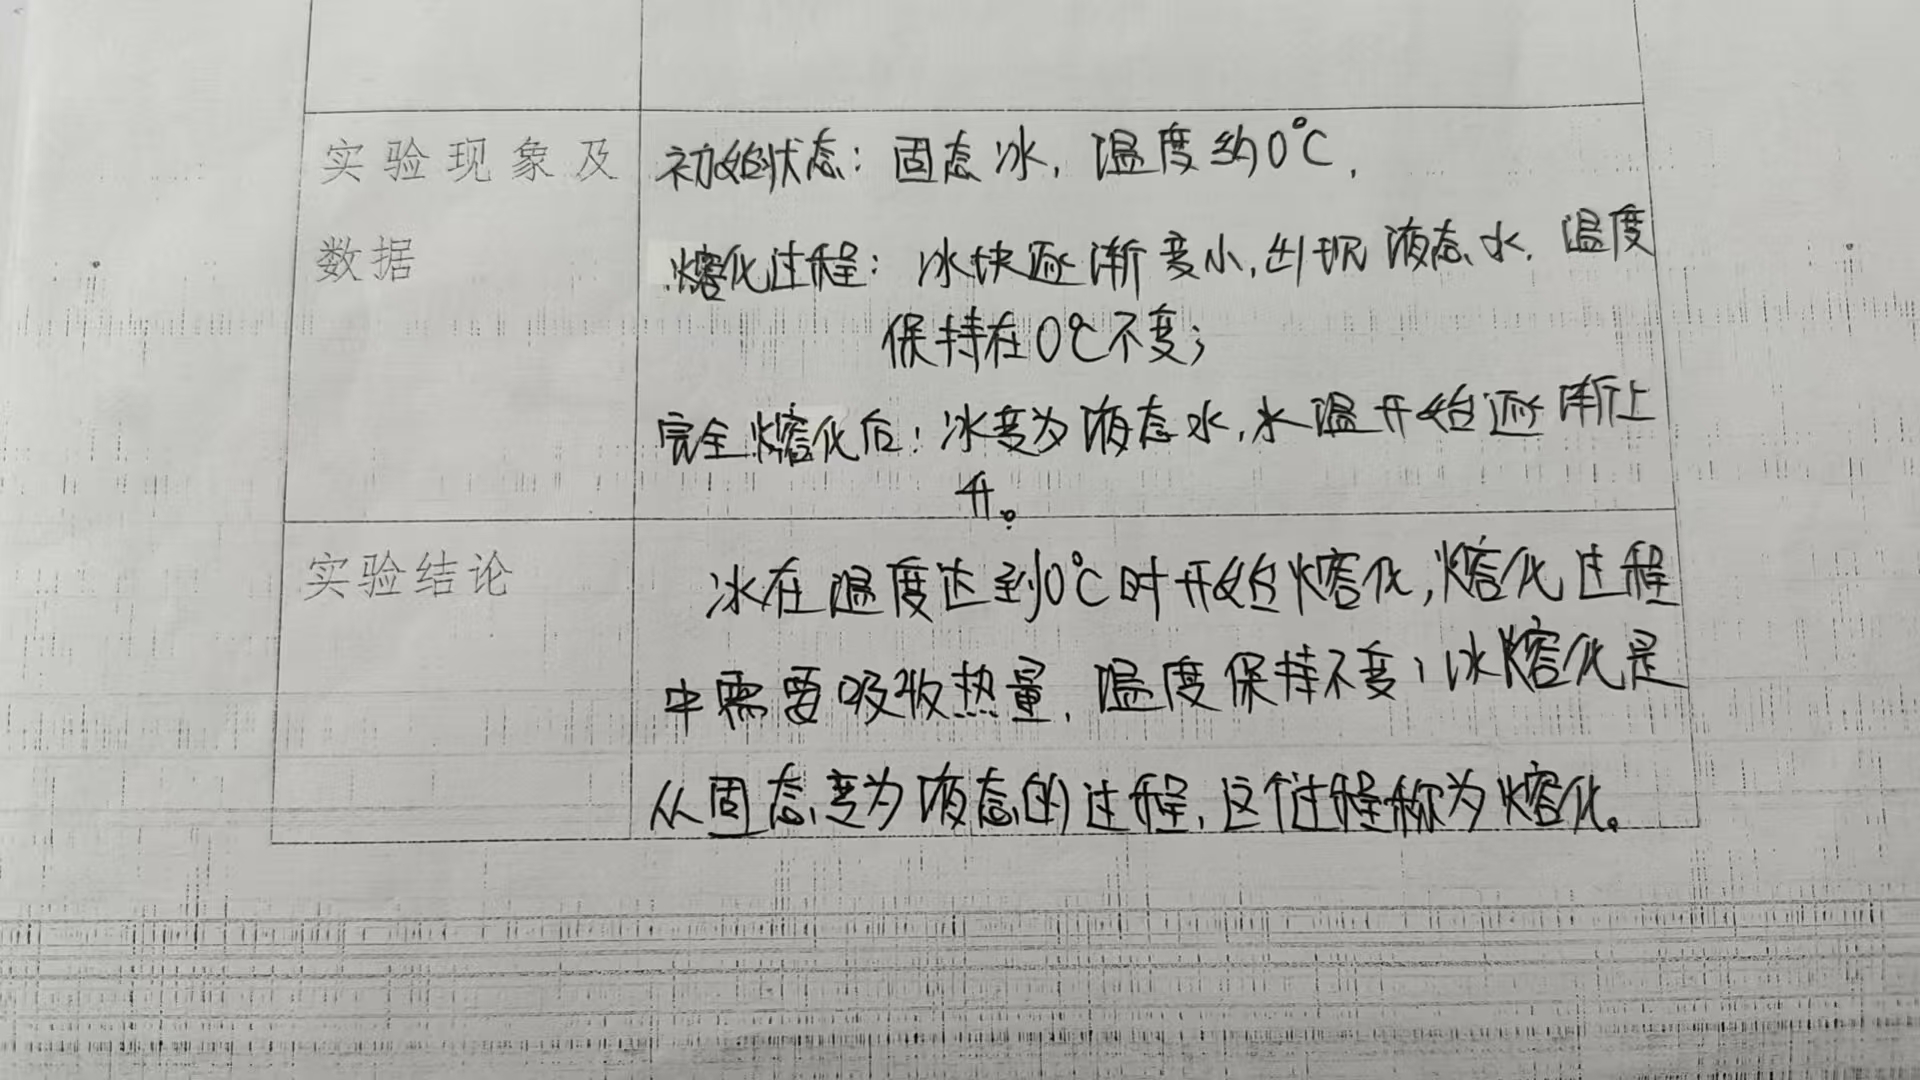 实验现象及
数据
初始状态：固态冰，温度约0℃，
熔化过程：冰块逐渐变小，出现液态水，温度
保持在0℃不变；
完全熔化后：冰变为液态水，水温开始逐渐上
升。
实验结论
冰在温度达到0℃时开始熔化，熔化过程
中需要吸收热量，温度保持不变；冰熔化是
从固态变为液态的过程，这个过程称为熔化。